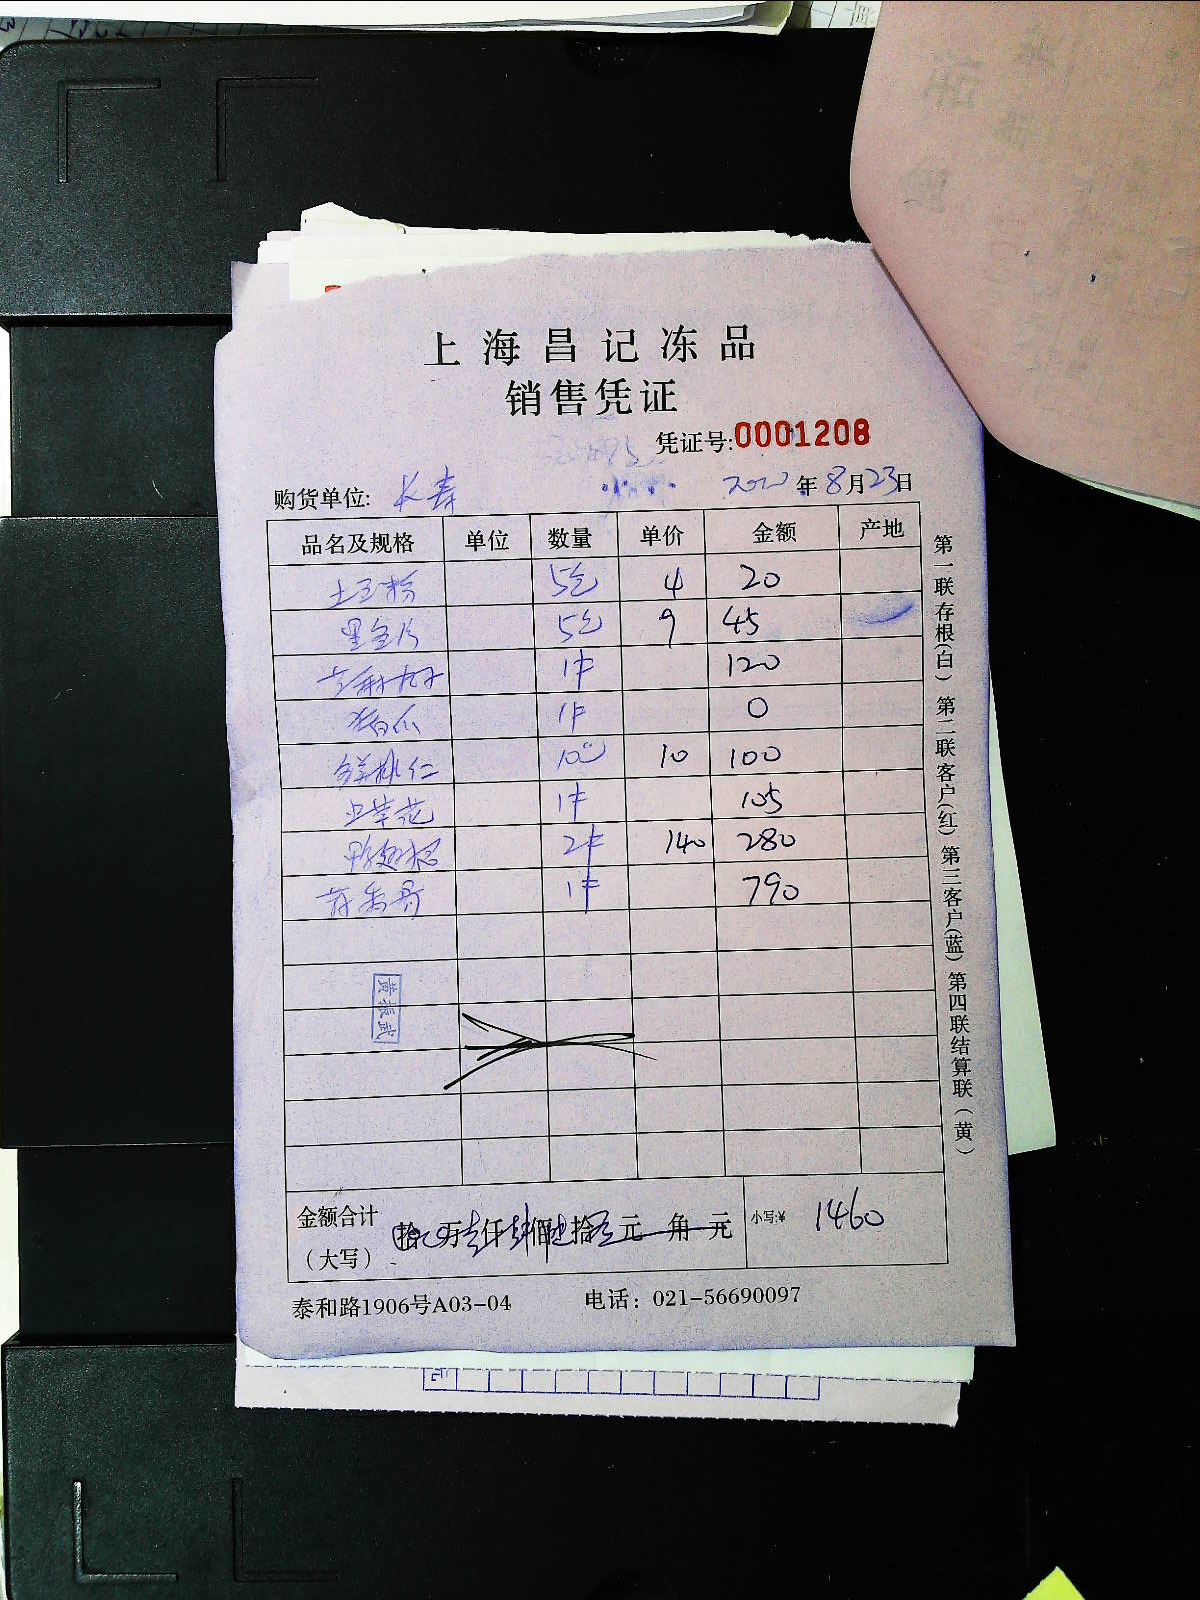 上海昌记冻品
销售凭证
凭证号:0001208
购货单位: 长寿 2020年8月23日
品名及规格 单位 数量 单价 金额 产地
土豆粉 5包 4 20
5包 9 45
1件 120
1件 0
鲜桃仁 10包 10 100
1件 105
2件 140 280
1件 790
黄振武
金额合计
(大写) 拾 万 仟 佰 拾 元 角 元 小写:¥ 1460
泰和路1906号A03-04 电话: 021-56690097
第一联存根(白) 第二联客户(红) 第三客户(蓝) 第四联结算联(黄)